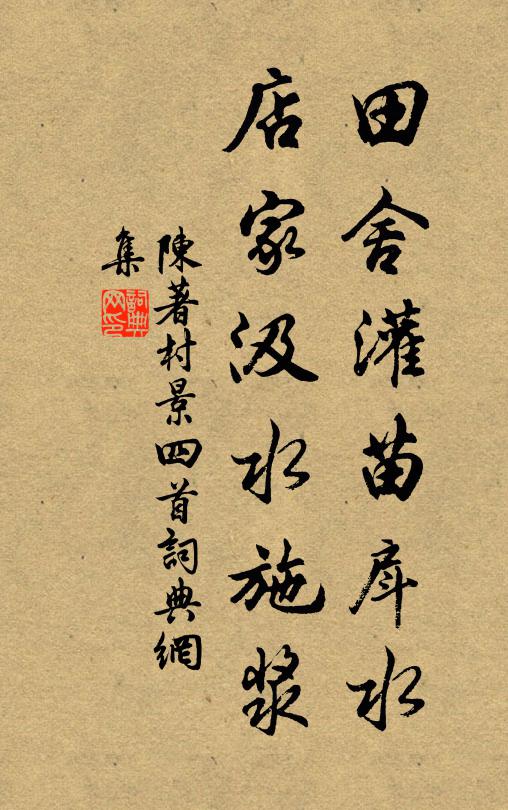 田舍灌苗戽水
店家汲水施漿
陳著村景四首詞典網
集
詞典
网印